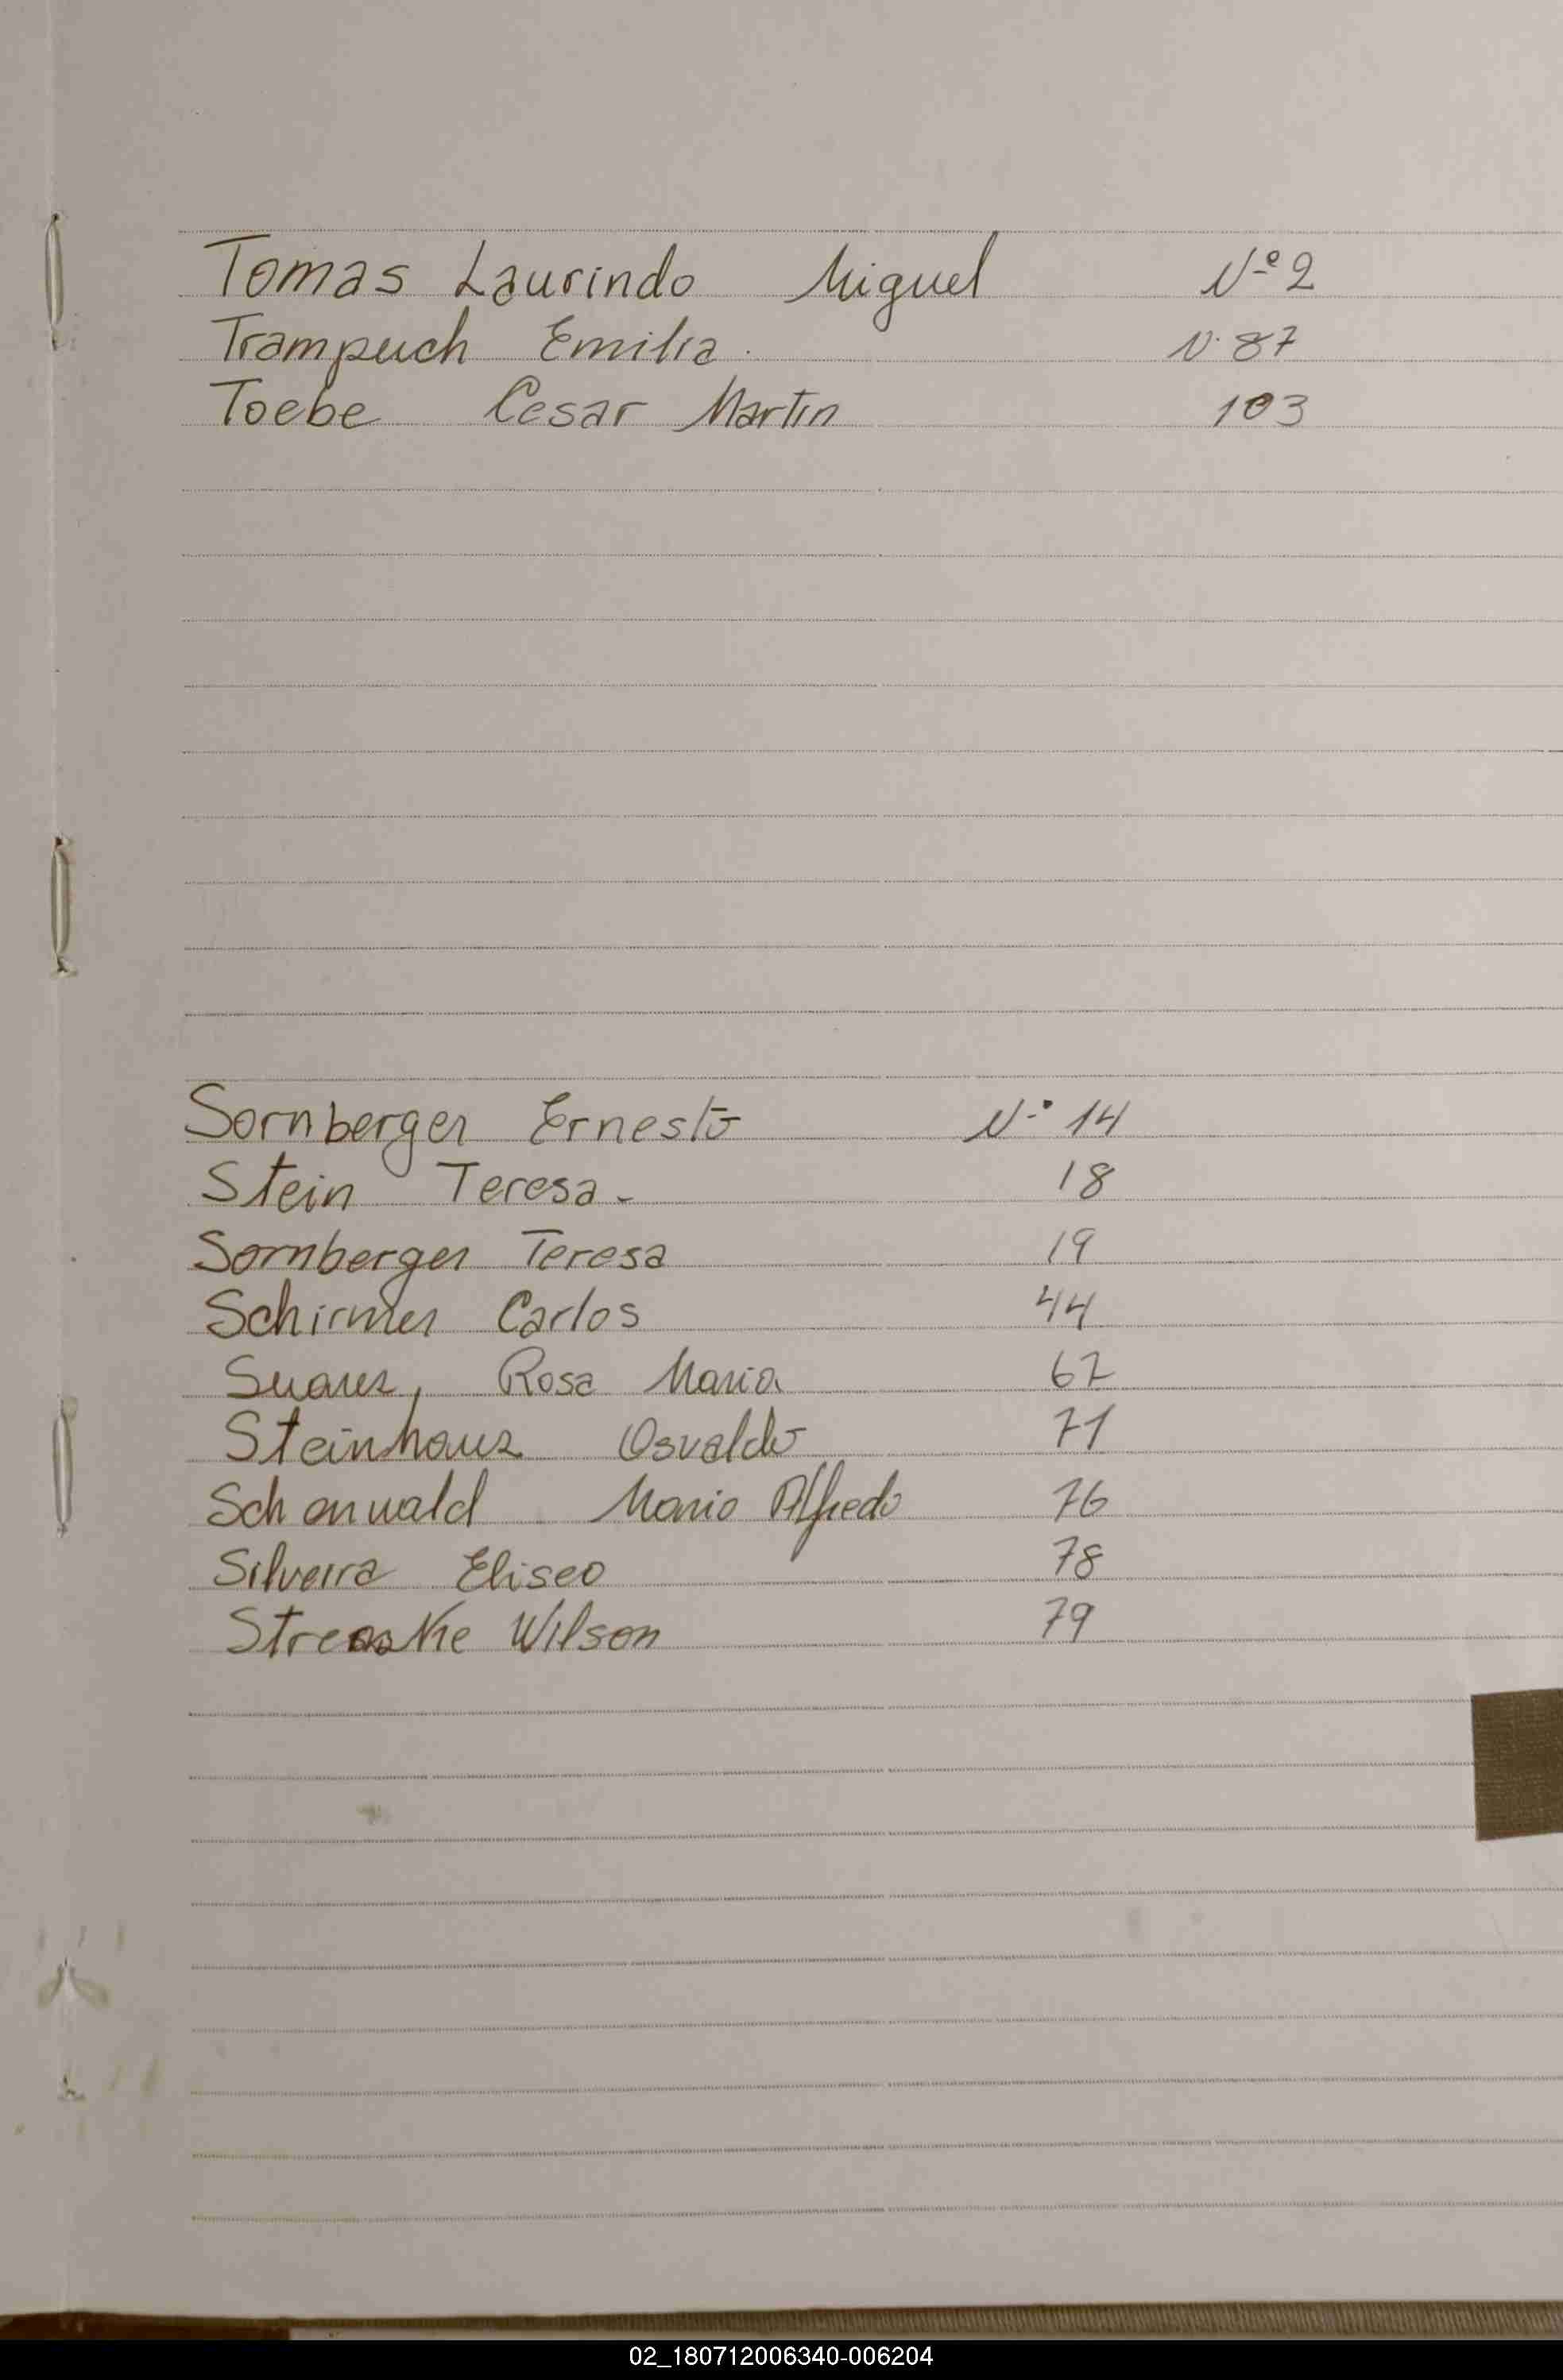 Tomas Laurindo Miguel Nº 2
Trampuch Emilia. N. 87
Toebe Cesar Martin 103
Sornberger Ernesto N.º 14
Stein Teresa. 18
Sornberger Teresa 19
Schirmer Carlos 44
Suarez, Rosa Maria 62
Steinhaus Osvaldo 71
Schonwald Mario Alfredo 76
Silveira Eliseo 78
Wilson 79
02_180712006340-006204